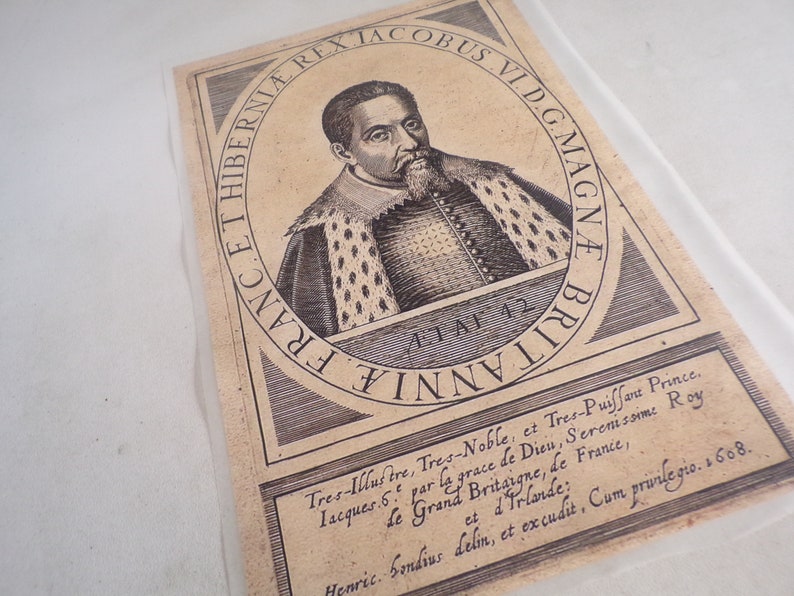 IACOBUS .VI.D.G.MAGNÆ BRITANNIÆ. FRANC. ET HIBERNIÆ REX.
ÆTAT 42
Tres-Illustre, Tres-Noble, et Tres-Puissant Prince,
Iacques.6.e par la grace de Dieu, Serenissime Roy
de Grand Britaigne, de France,
et d'Irlande:
Henric. hondius delin, et excudit, Cum privilegio. 1608.